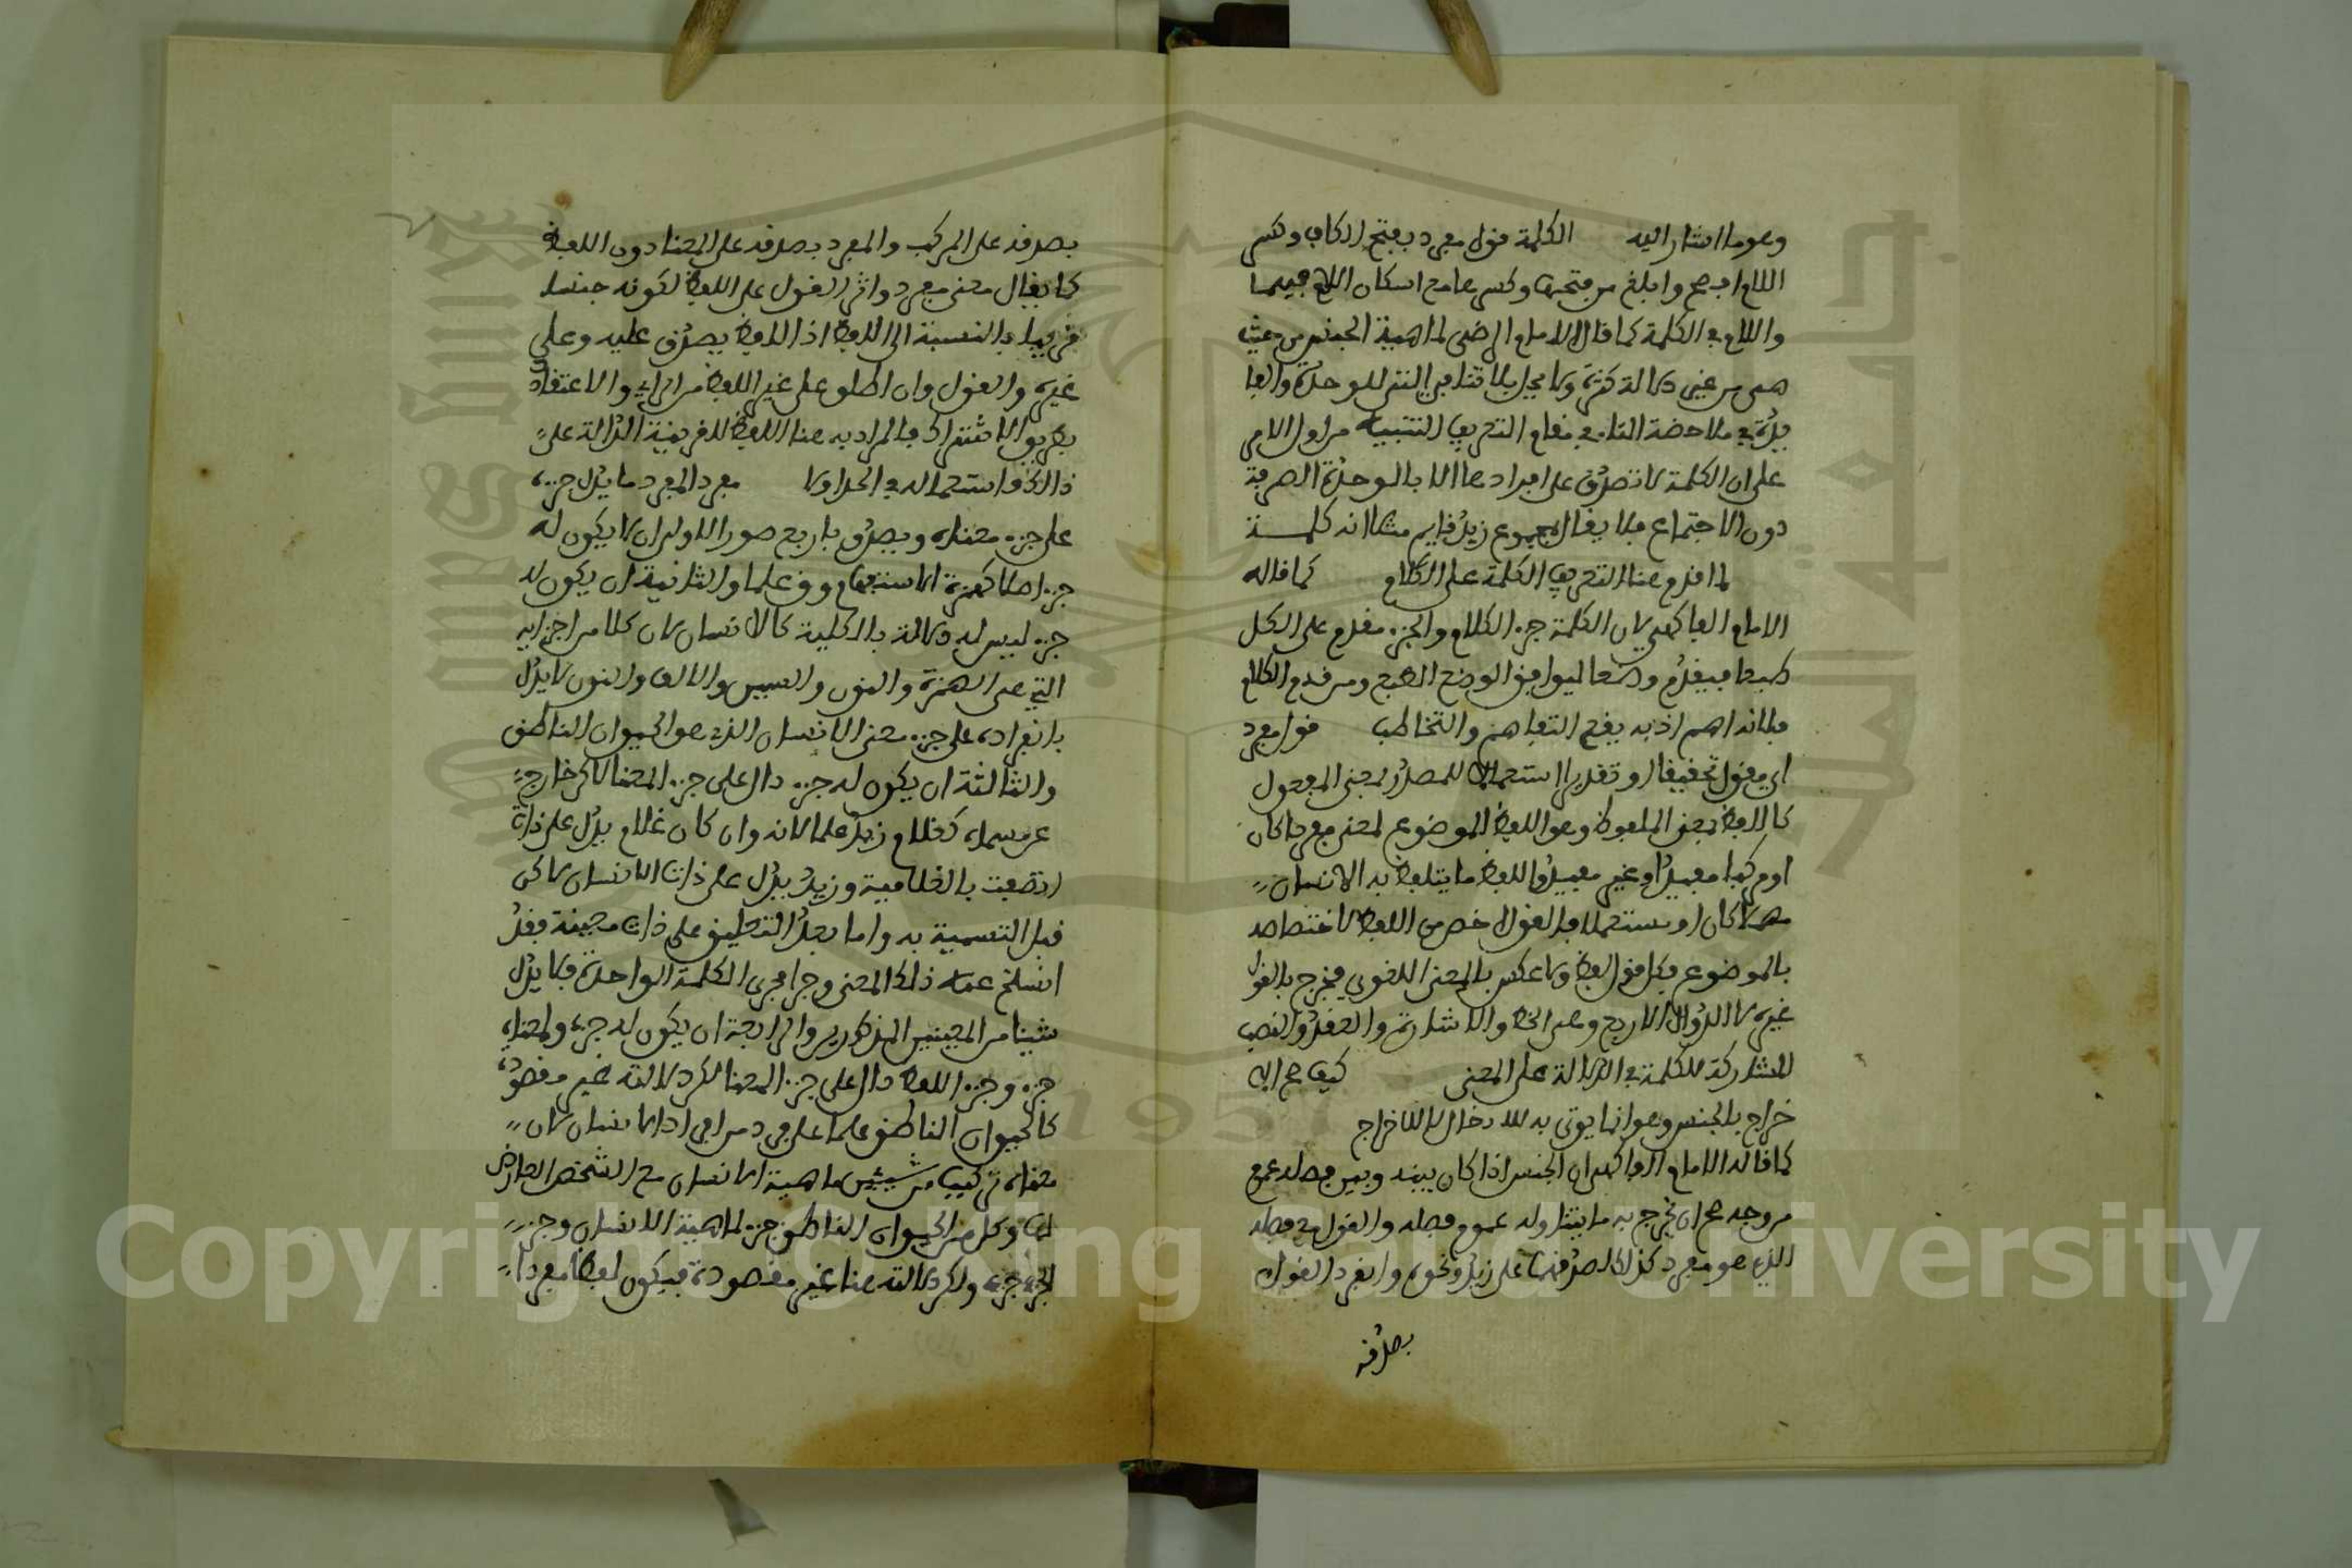 وهو ما اشار اليه الكلمة قول مفرد بفتح الكاف وكسر
اللام افصح وابلغ من فتحها وكسرها مع اسكان اللام فيهما
واللام في الكلمة كما قال الامام الرضى لماهية الجنس من حيث
هي من غير دلالة كثرة ولا بلا تنافي التى للوحدة والفا
يدة في ملاحظة التا في مقام التعريف التنبيه من اول الامر
على ان الكلمة لا تصدق على افرادها الا بالوحدة الصرفة
دون الاجتماع فلا يقال لمجموع زيد قايم مثلا انه كلمة
لما قدم هنا التعريف الكلمة على الكلام كما قاله
الامام الفاكهي لان الكلمة جزء الكلام والجزء مقدم على الكل
طبعا فيقدم وضعا ليوافق الوضع الطبع ومن قدم الكلام
فلانه اهم اذ به يقع التفاهم والتخاطب قول مفرد
اي مقول تحقيقا او تقديرا استعمالا للمصدر بمعنى المفعول
كاللفظ بمعنى الملفوظ وهو اللفظ الموضوع لمعنى مفردا كان
او مركبا مفيدا او غير مفيد واللفظ ما يتلفظ به الانسان
مهملا كان او مستعملا فالقول اخص من اللفظ لاختصاصه
بالموضوع فكل قول لفظ ولا عكس بالمعنى اللغوي فيخرج بالقول
غيره كالدوال الاربع وهي الخط والاشارة والعقد والنصب
المشاركة للكلمة في الدلالة على المعنى كيف صح الا
خراج بالجنس وهو انما يوتى به للادخال لا للاخراج
كما قاله الامام الفاكهي ان الجنس اذا كان بينه وبين فصله عموم
من وجه صح ان يخرج به ما يتناوله عموم فصله والقول مع فصله
الذي هو مفرد كذلك لصدقهما على زيد ونحوه وانفرد القول
بصدقه
بصدقه على المركب والمفرد بصدقه على المعنا دون اللفظ
كما يقال معنى مفرد واثر القول على اللفظ لكونه جنسا
قريبا بالنسبة الى اللفظ اذ اللفظ يصدق عليه وعلى
غيره والقول وان اطلق على غير اللفظ من الراي والاعتقاد
بطريق الاشتراك فالمراد به هنا اللفظ للقرينة الدالة على
ذالك واستعماله في الحد اولا مفرد المفرد ما يدل جزءه
على جزء معناه ويصدق باربع صور الاولى ان لا يكون له
جزء اصلا كهمزة الاستفهام وق علما والثانية ان يكون له
جزء ليس له دلالة بالكلية كالانسان لان كلا من اجزايه
التي هي الهمزة والنون والسين والالف والنون لا يدل
بانفراده على جزء معنى الانسان الذي هو الحيوان الناطق
والثالثة ان يكون له جزء دال على جزء المعنا لاكن خارج
عن مسماه كغلام زيد علما لانه وان كان غلام يدل على ذات
اتصفت بالغلامية وزيد يدل على ذات الانسان لاكن
قبل التسمية به واما بعد التعليق على ذات معينة فقد
انسلخ عنه ذلك المعنى وجرا مجرى الكلمة الواحدة فلا يدل
شيئا من المعنيين المذكورين والرابعة ان يكون له جزء ولمعناه
جزء وجزء اللفظ دال على جزء المعنا لكن دلالته غير مقصودة
كالحيوان الناطق علما على فرد من افراد الانسان لان
معناه تركيب من شيئين ماهية الانسان مع الشخص العارض
لها وكل من الحيوان الناطق جزء لماهية الانسان وجزء
الجزء جزء ولكن دلالته هنا غير مقصودة فيكون لفظا مفردا